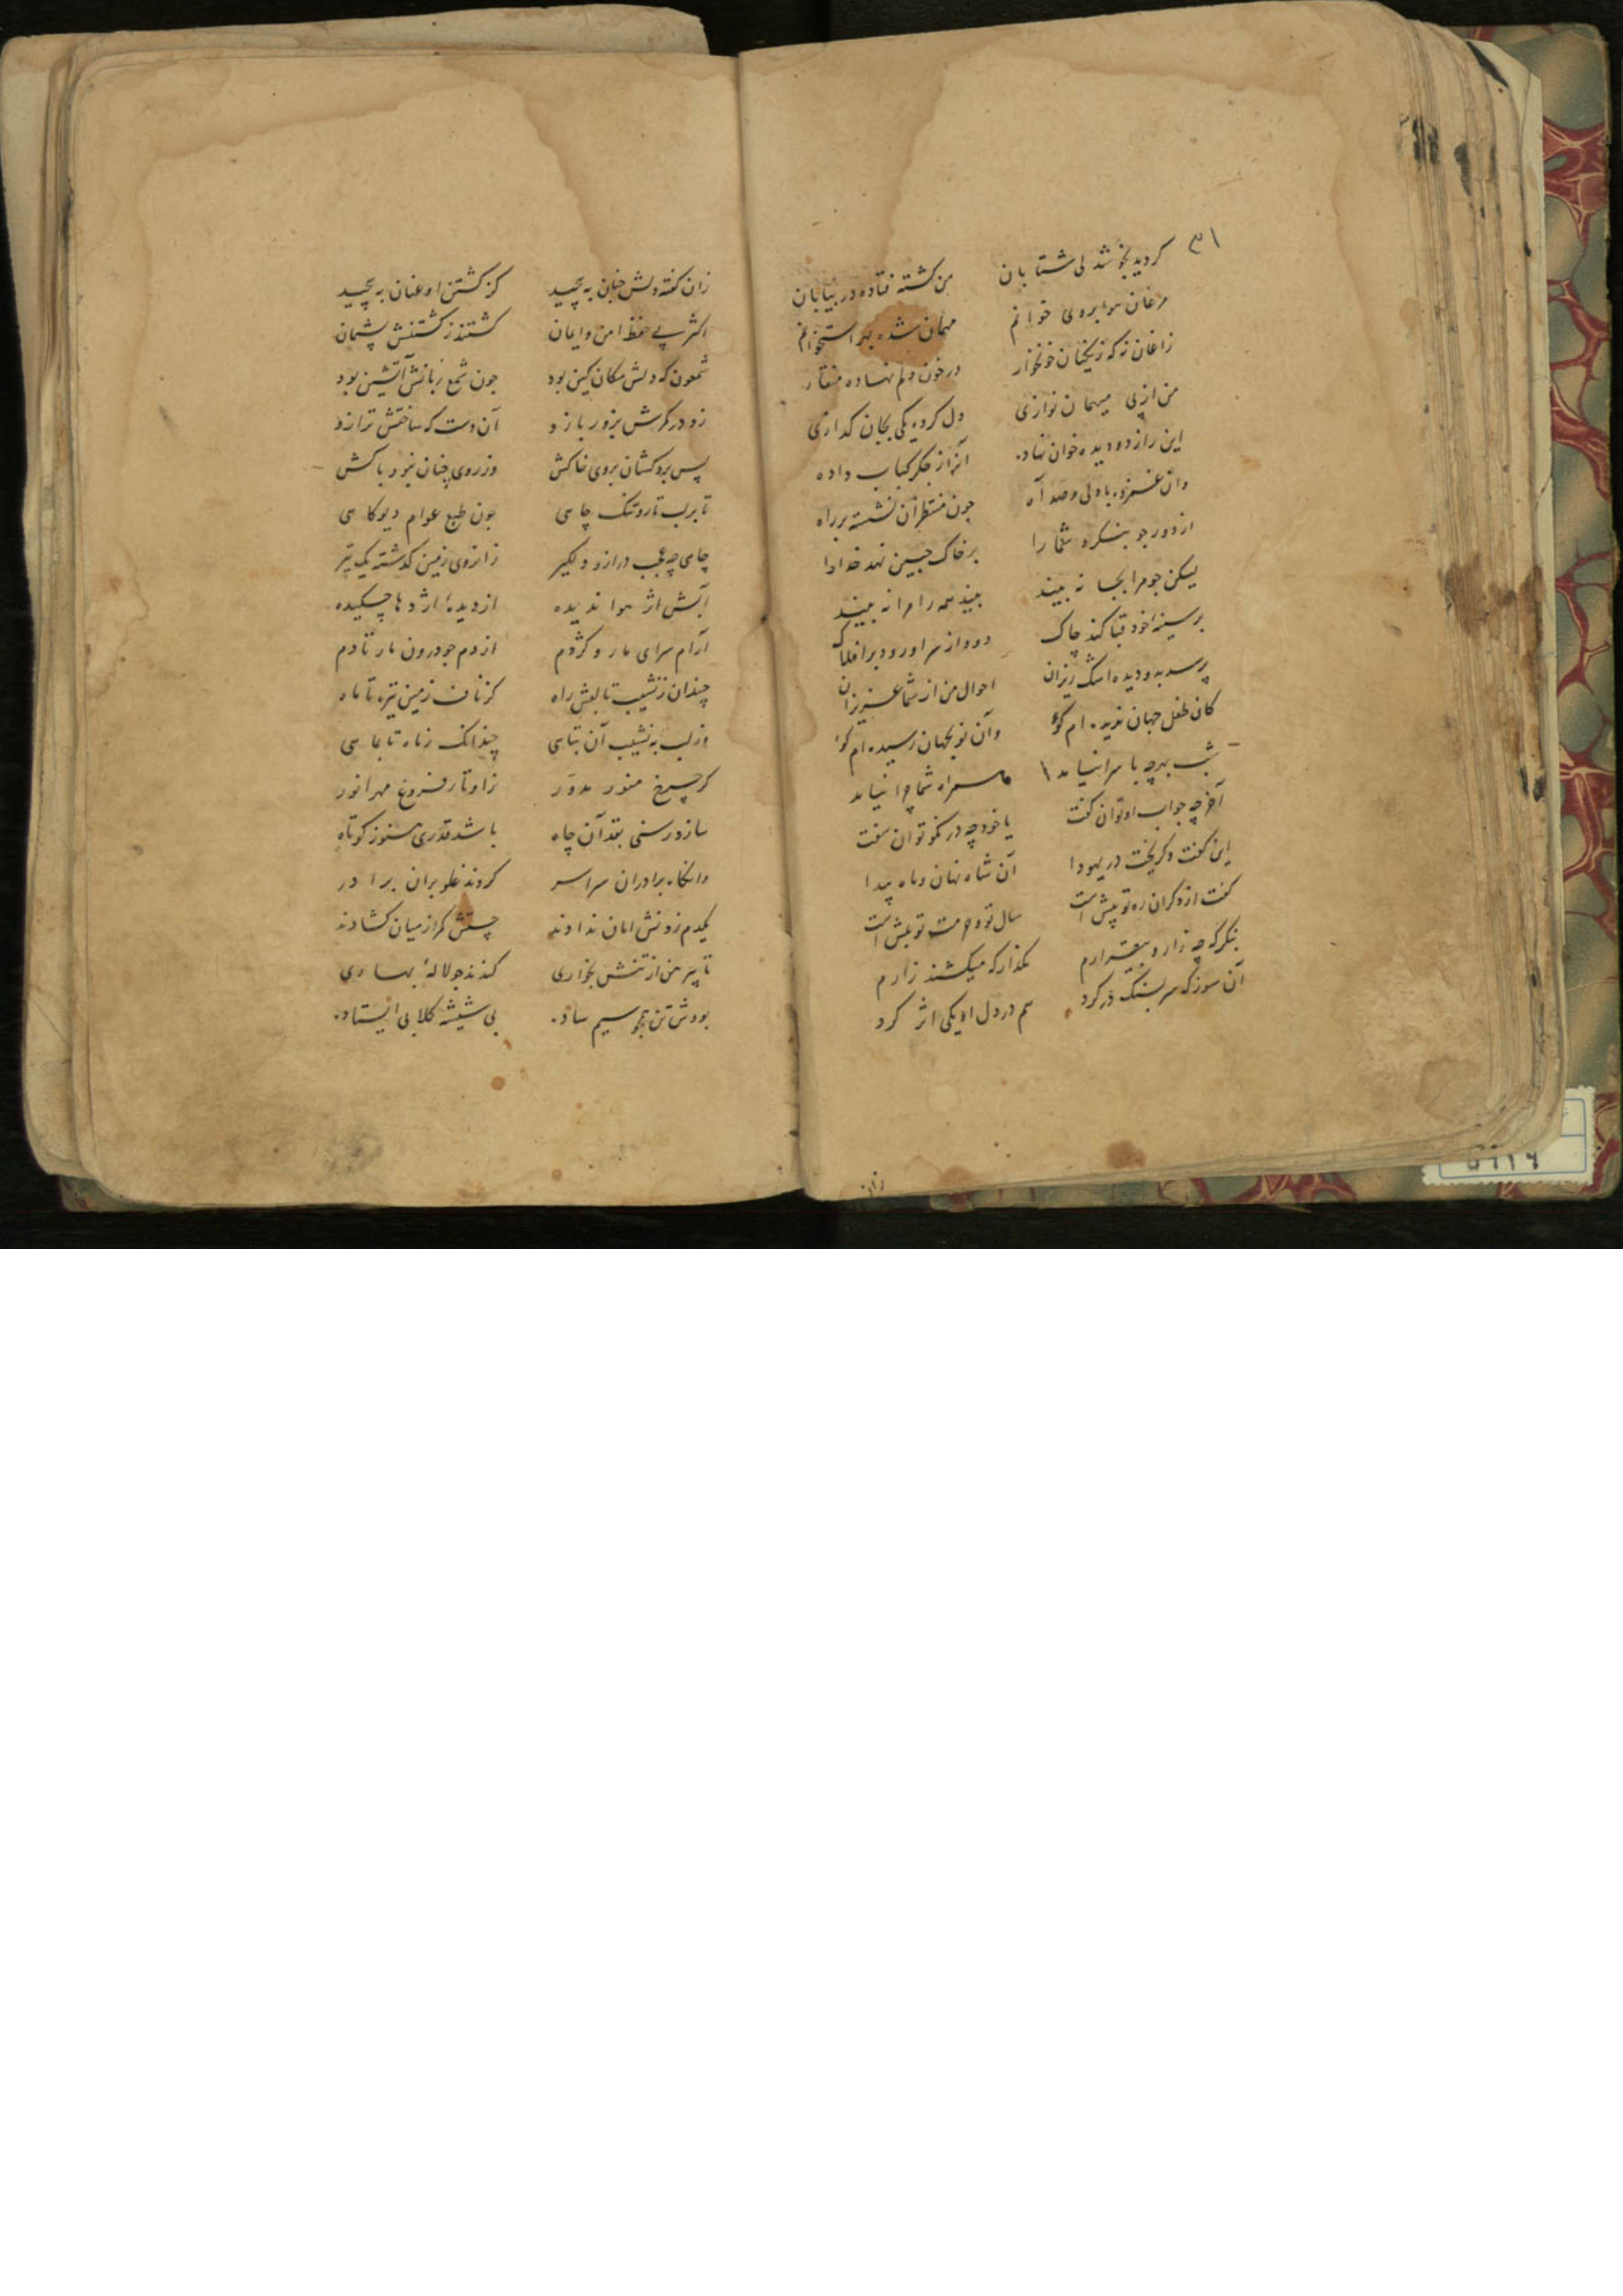 ۳۱
گردید بخو شدلی شتابان من کشته فتاده در بیابان
مرغان هوا بروی خوانم مهمان شده بر استخوانم
زاغان نه که زنگیان خونخوار در خون دلم نهاده منقار
من از پی میهمان نوازی دل کرده یکی بجان کدازی
این را ز دو دیده خوان نهاده آنرا ز جگر کباب داده
وان غمزده با دلی و صد آه چون منتظران نشسته بر راه
از دور چو بنگرد شما را بر خاک جبین نهد خدا را
لیکن چو مرا بجا نه بیند بیند همه را مرا نه بیند
بر سینه خود قبا کند چاک دود از سر او رود بر افلاک
پرسد بدو دیده اشک ریزان احوال من از شما عزیزان
کان طفل جهان ندیده ام کو وآن نو بجهان رسیده ام کو
شب بهر چه با سرا نیامد همراه شما چرا نیامد
آخر چه جواب او توان گفت یا خود چه در نکو توان سفت
این گفت و گریخت در یهودا آن شاه نهان و ماه پیدا
گفت از دگران ره تو پیش است سال تو و حرمت تو بیش است
بنگر که چه زار و بیقرارم مگذار که میکشند زارم
آن سوز که سر بسنگ در کرد هم در دل او یکی اثر کرد
زان
زان گفته دلش چنان به پیچید کز کشتن او عنان به پیچید
اکثر پی حفظ امن و ایمان گشتند ز کشتنش پشیمان
شمعون که دلش مکان کین بود چون شمع زبانش آتشین بود
زد در کمرش بزور بازو آن دست که ساختش ترازو
پس برد کشان بروی خاکش وز روی چنان نبود باکش
تا بر لب تار و تنگ چاهی چون طبع عوام دیو کاهی
چاهی چه عجب دراز و دلگیر زانروی زمین گذشته یک تیر
آبش اثر هوا ندیده از دیده اژدها چکیده
آرام سرای مار و کژدم از دم چو درون مار تا دم
چندان ز نشیب تا لبش راه کز ناف زمین تیره تا ماه
وز لب به نشیب آن تباهی چندانک ز ماه تا بماهی
گر چرخ منور مدور ز اوتار فروغ مهر انور
سازد رسنی بقد آن چاه باشد قدری هنوز کوتاه
وانگاه برادران سراسر کردند غلو بران برادر
یکدم زدنش امان ندادند چستش کمر از میان گشادند
تا پیرهن از تنش بخواری کندند چو لاله بهاری
بودش تن همچو سیم ساده بی شیشه گلابی ایستاده
۵۹۱۶